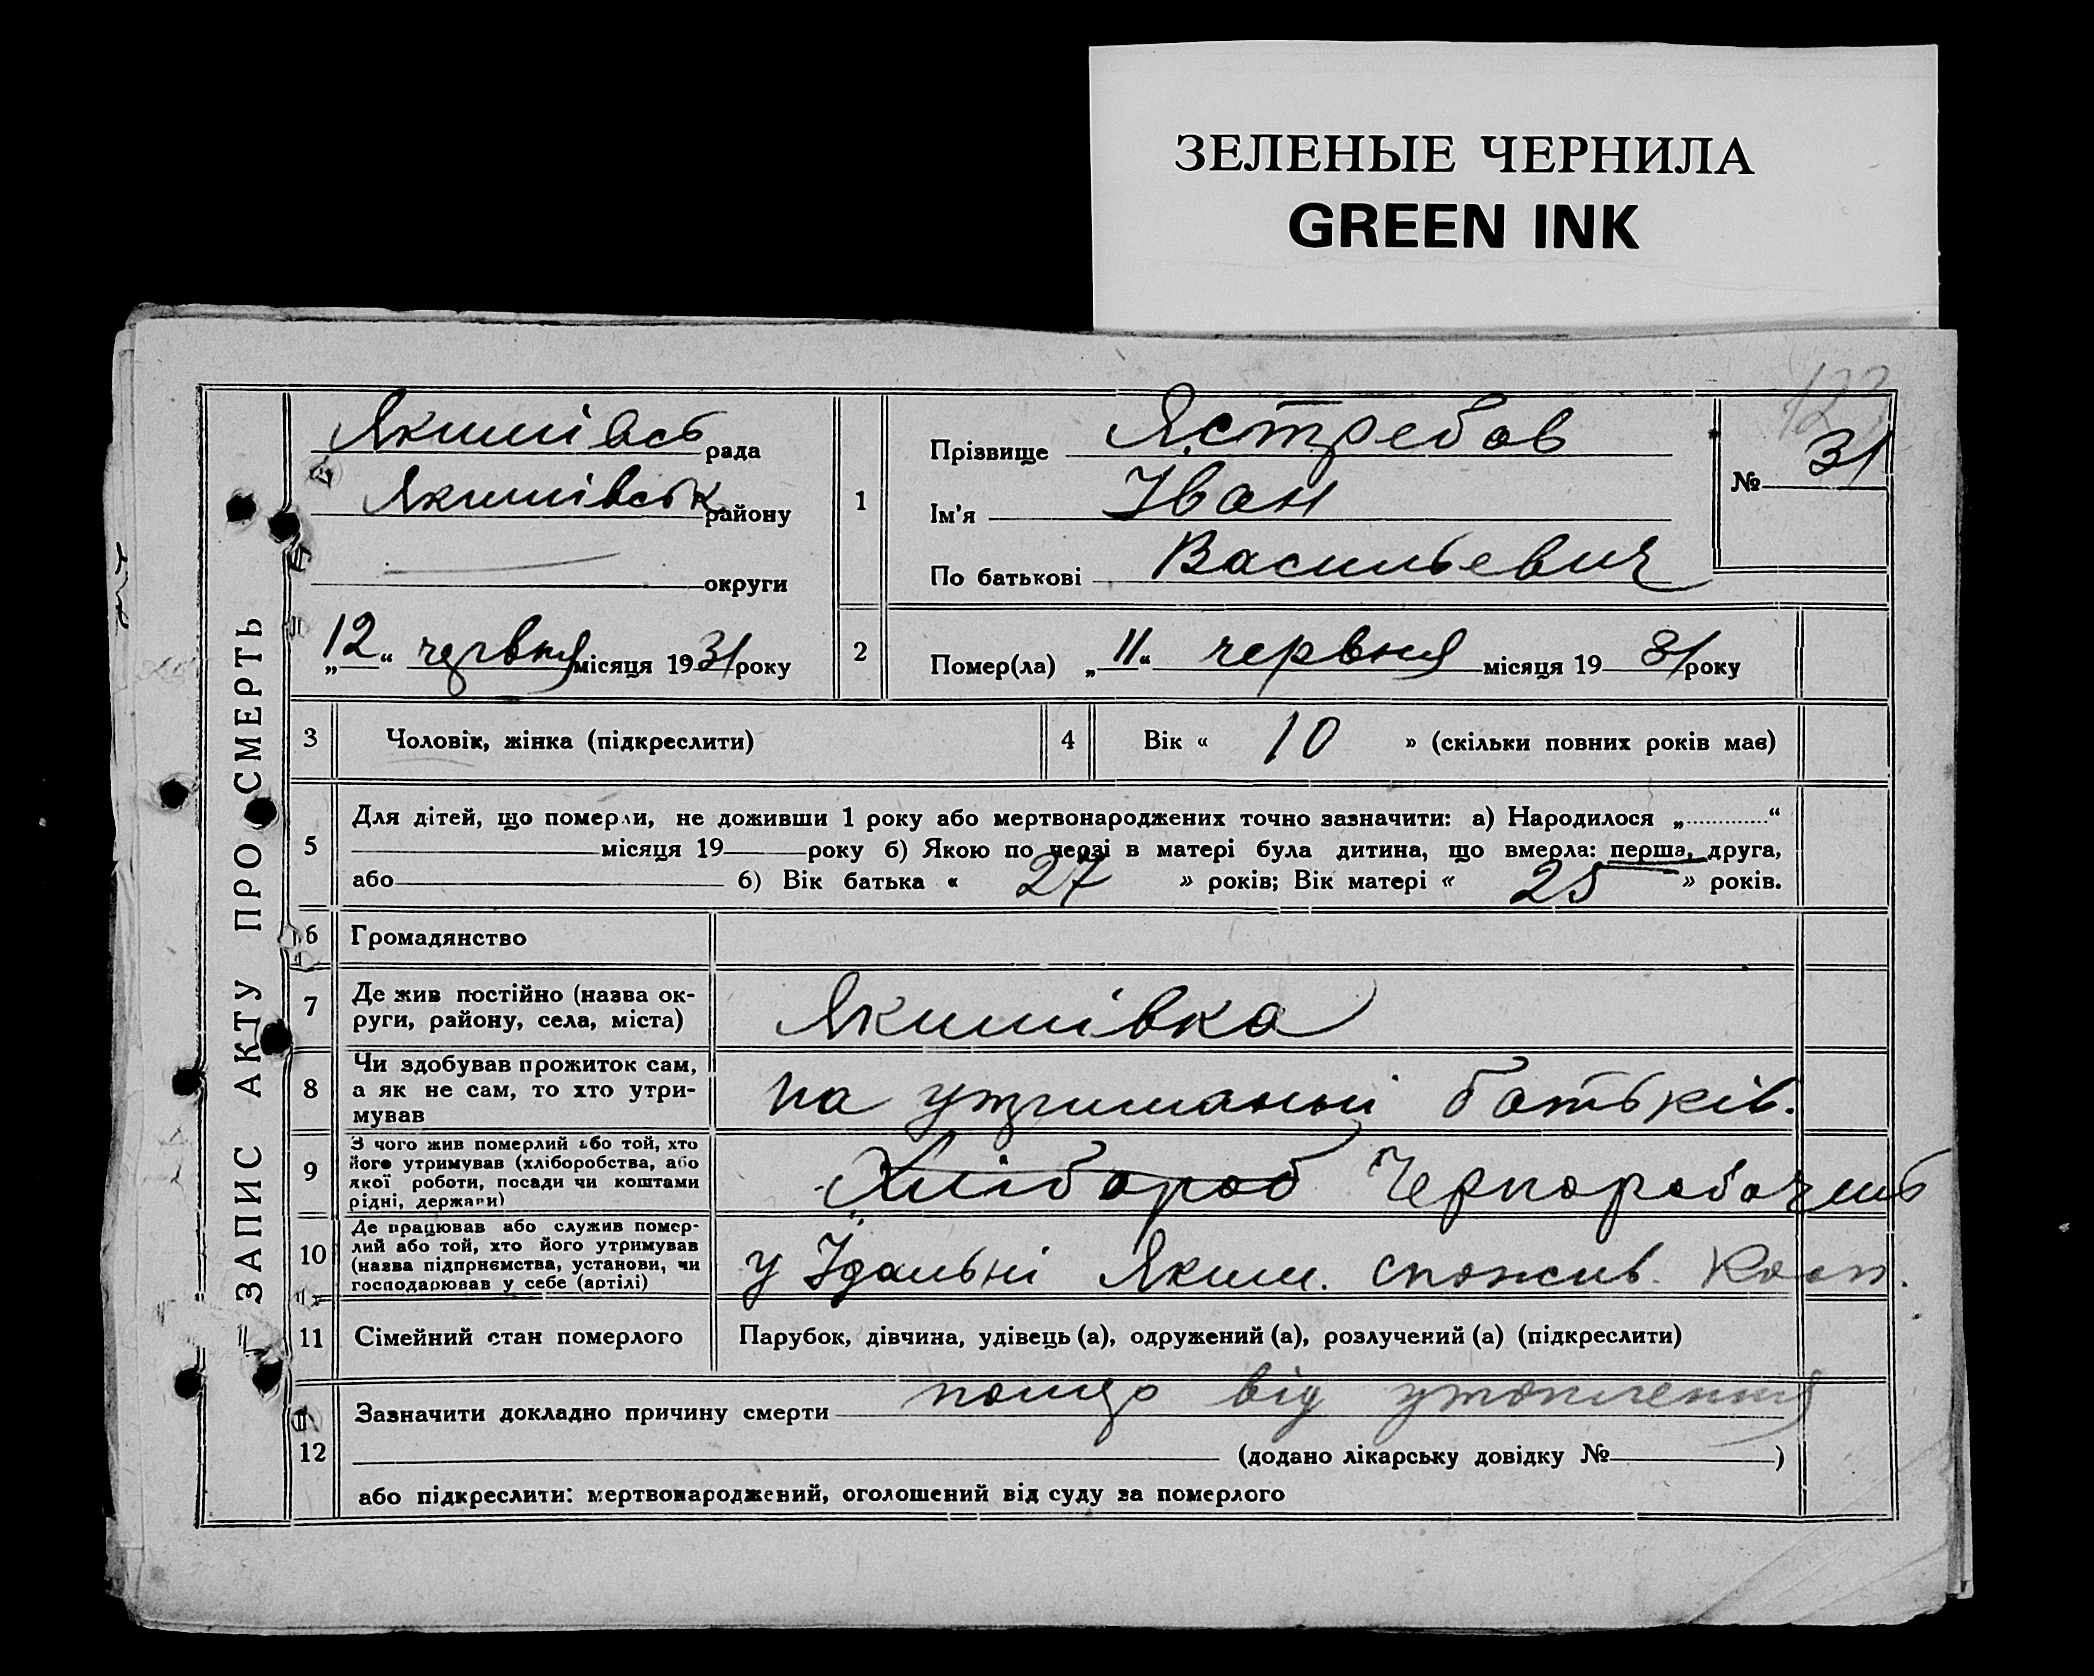 ЗЕЛЕНЫЕ ЧЕРНИЛА
GREEN INK
ЗАПИС АКТУ ПРО СМЕРТЬ
Якимівсь рада
Якимівськ району
округи
„12“ червня місяця 1931 року
1
Прізвище Ястребов
Ім'я Іван
По батькові Васильевич
№ 31
2
Помер(ла) „11“ червня місяця 19 31 року
3 Чоловік, жінка (підкреслити)
4 Вік « 10 » (скільки повних років має)
5 Для дітей, що померли, не доживши 1 року або мертвонароджених точно зазначити: а) Народилося „ “
місяця 19 року б) Якою по черзі в матері була дитина, що вмерла: перша, друга,
або б) Вік батька « 27 » років; Вік матері « 25 » років.
6 Громадянство
7 Де жив постійно (назва ок-
руги, району, села, міста)
Якимівка
8 Чи здобував прожиток сам,
а як не сам, то хто утри-
мував
на утриманні батьків.
9 З чого жив померлий або той, хто
його утримував (хліборобства, або
якої роботи, посади чи коштами
рідні, держави)
Хлібороб Чернорабочий
10 Де працював або служив помер-
лий або той, хто його утримував
(назва підприємства, установи, чи
господарював у себе (артілі)
у Їдальні Яким. спожив. Кооп.
11 Сімейний стан померлого Парубок, дівчина, удівець (а), одружений (а), розлучений (а) (підкреслити)
12 Зазначити докладно причину смерти від утоплення
(додано лікарську довідку № )
або підкреслити: мертвонароджений, оголошений від суду за померлого